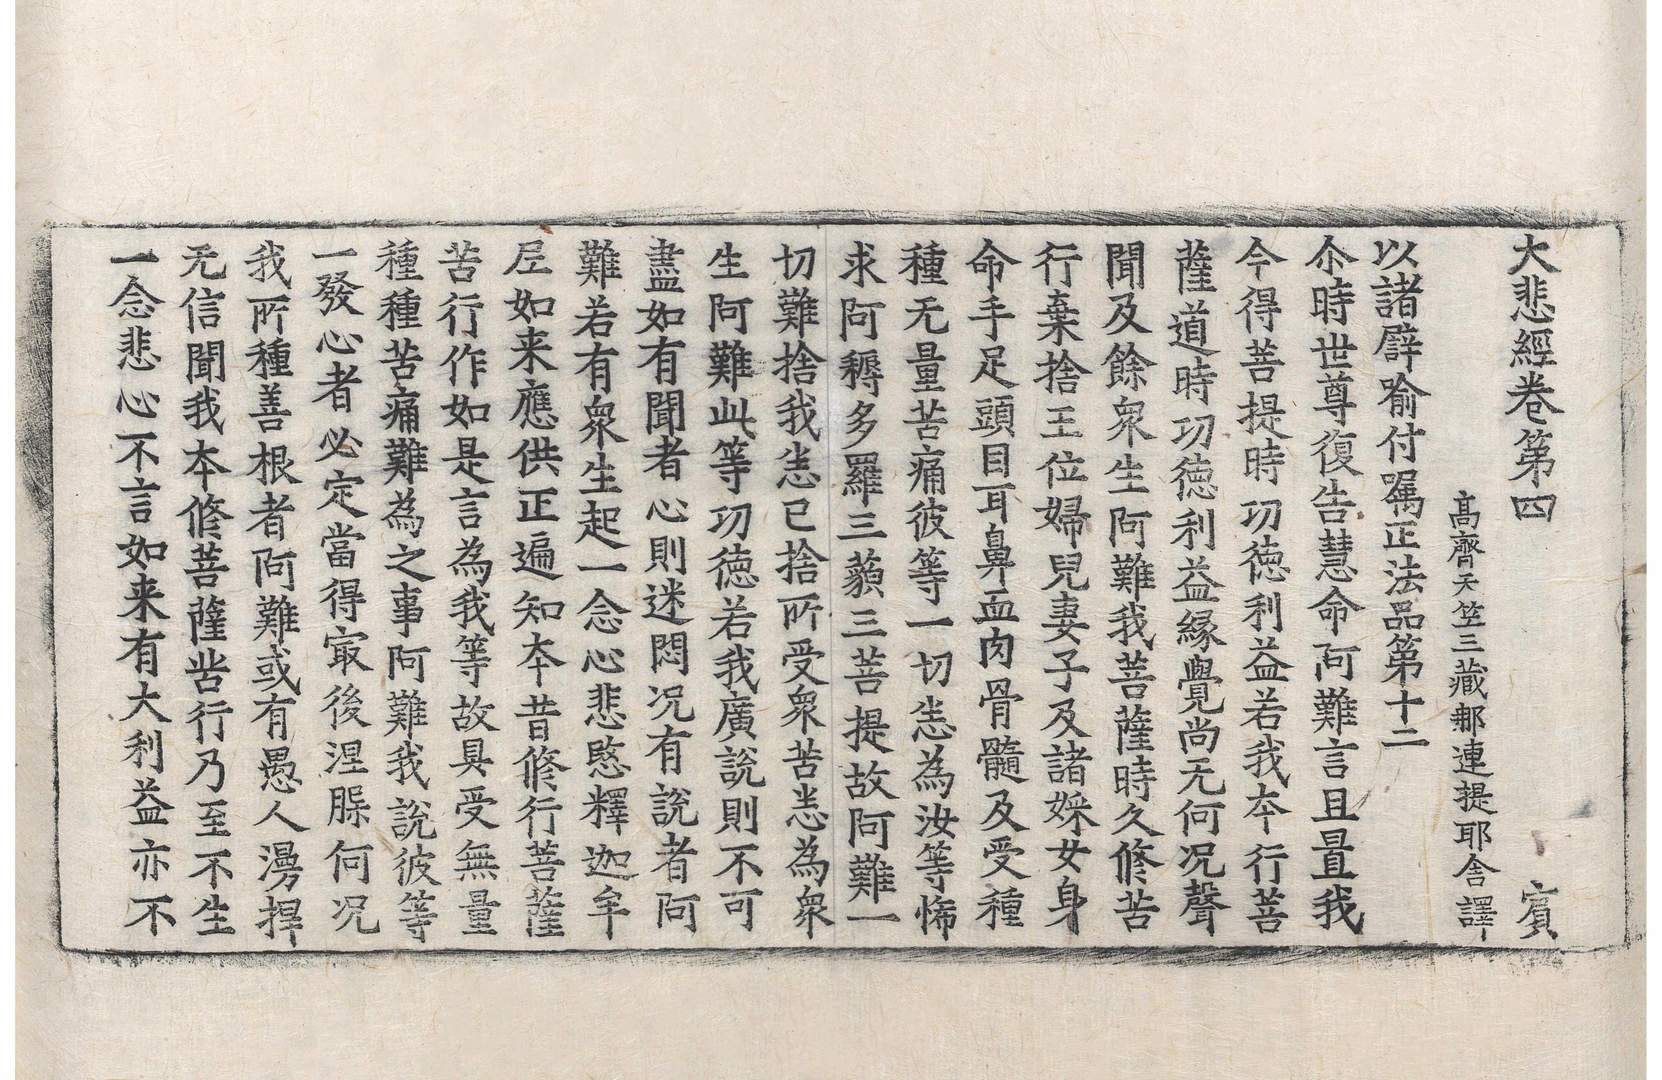 大悲經卷第四　賔
髙齊天竺三藏那連提耶舎譯
以諸譬喻付囑正法品第十二
尒時世尊復告慧命阿難言且置我
今得菩提時功徳利益若我夲行菩
薩道時功徳利益緣覺尚无何况聲
聞及餘衆生阿難我菩薩時久修苦
行棄捨王位婦兒妻子及諸婇女身
命手足頭目耳鼻血肉骨髓及受種
種无量苦痛彼等一切㤀為汝等悕
求阿耨多羅三藐三菩提故阿難一
切難捨我㤀已捨所受衆苦㤀為衆
生阿難此等功徳若我廣說則不可
盡如有聞者心則迷悶况有說者阿
難若有衆生起一念心悲愍釋迦牟
尼如来應供正遍知夲昔修行菩薩
苦行作如是言為我等故具受無量
種種苦痛難為之事阿難我說彼等
一發心者必定當得㝡後涅槃何况
我所種善根者阿難或有愚人澷捍
无信聞我夲修菩薩苦行乃至不生
一念悲心不言如来有大利益亦不